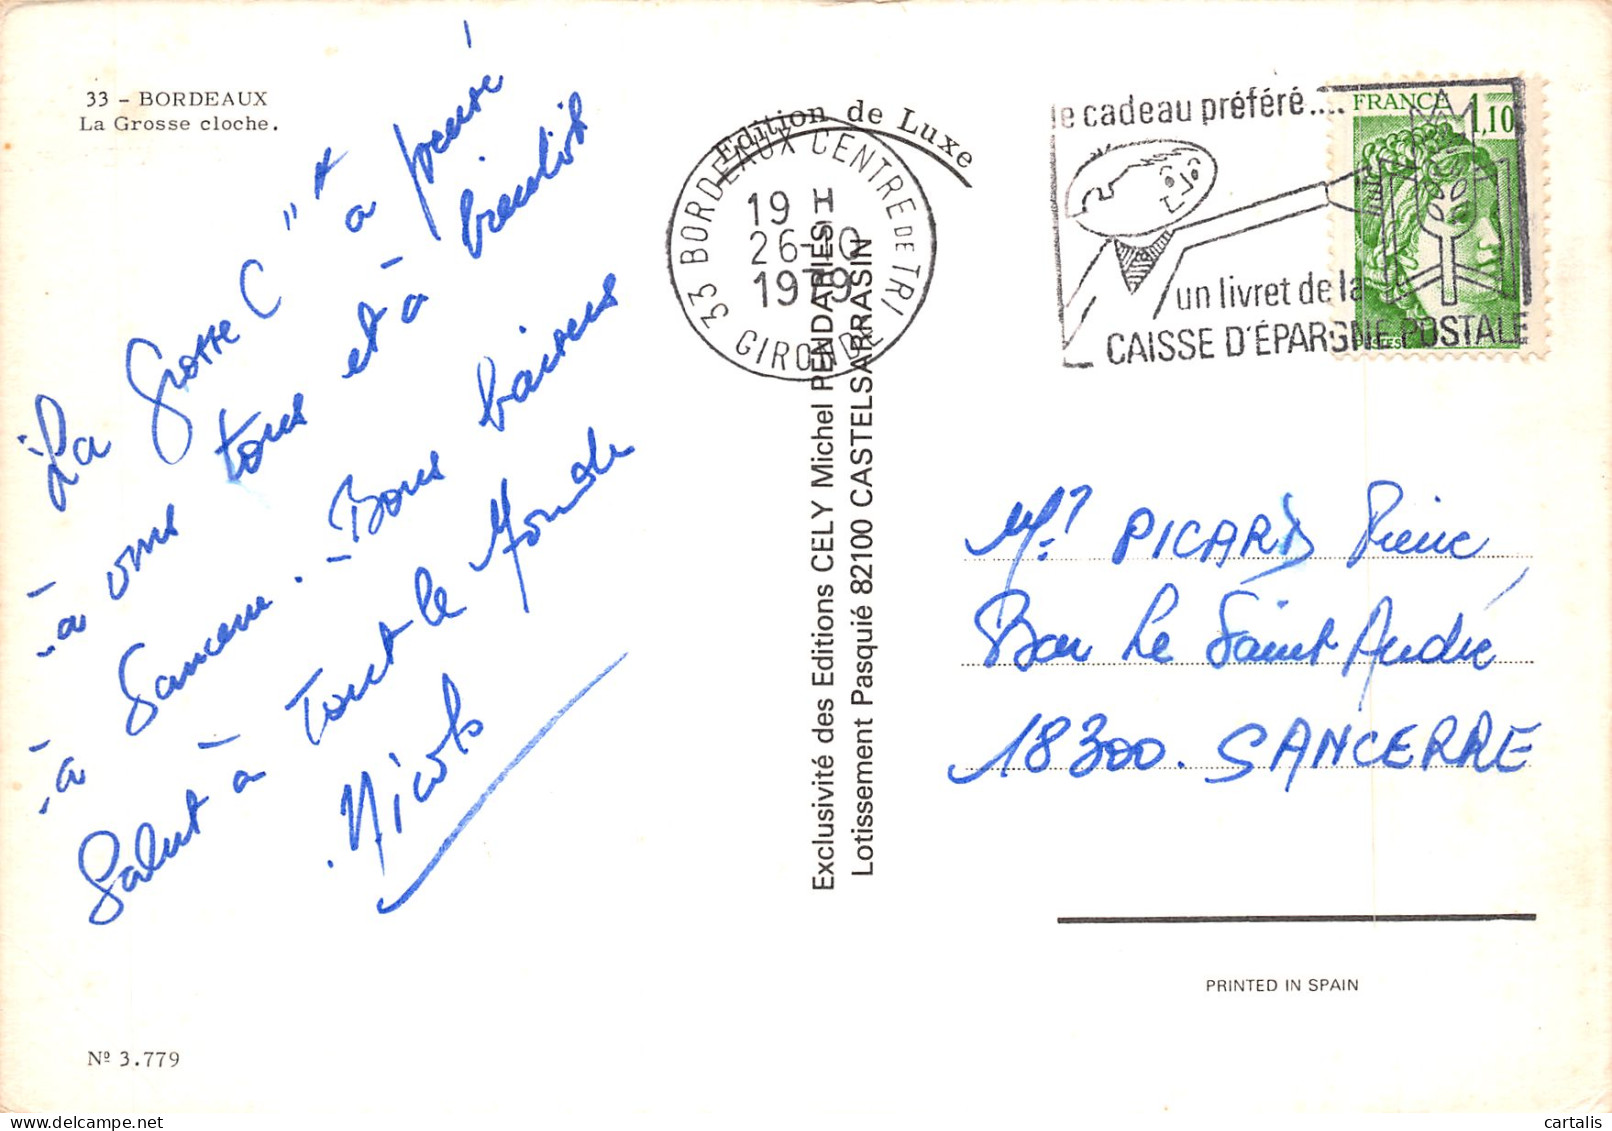 33 - BORDEAUX
La Grosse cloche.
La Grosse C "*" a pensé
- à vous tous et à bientôt
- à Sancerre. - Bons baisers
Salut à tout le Monde
. Nicole
Nº 3.779
Edition de Luxe
33 BORDEAUX CENTRE DE TRI
19 H
26-
1979
GIRONDE
Exclusivité des Editions CELY Michel PENDARIES
Lotissement Pasquié 82100 CASTELSARRASIN
le cadeau préféré....
un livret de la
CAISSE D'ÉPARGNE POSTALE
FRANCE 1,10
POSTES
Mr PICARD Pierre
Bar Le Saint André
18300. SANCERRE
PRINTED IN SPAIN
cartalis